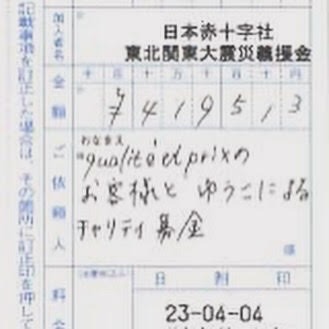 記載事項を訂正した場合は、その箇所に訂正印を押して
加入者名
日本赤十字社
東北関東大震災義援金
金額
¥419513
ご依頼人
おなまえ
qualité et prix の
お客様と ゆうこによる
チャリティ募金
様
料金
日附印
23-04-04